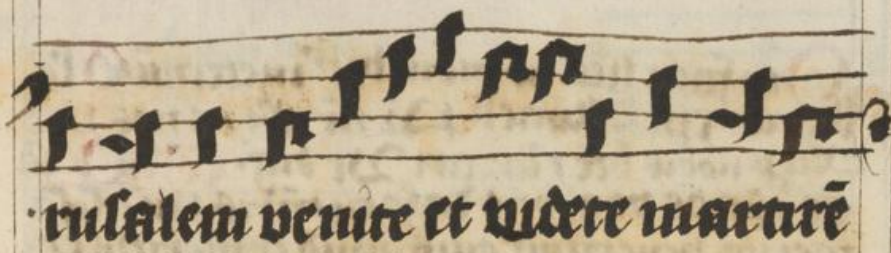 ·rusalem venite et videte martirē